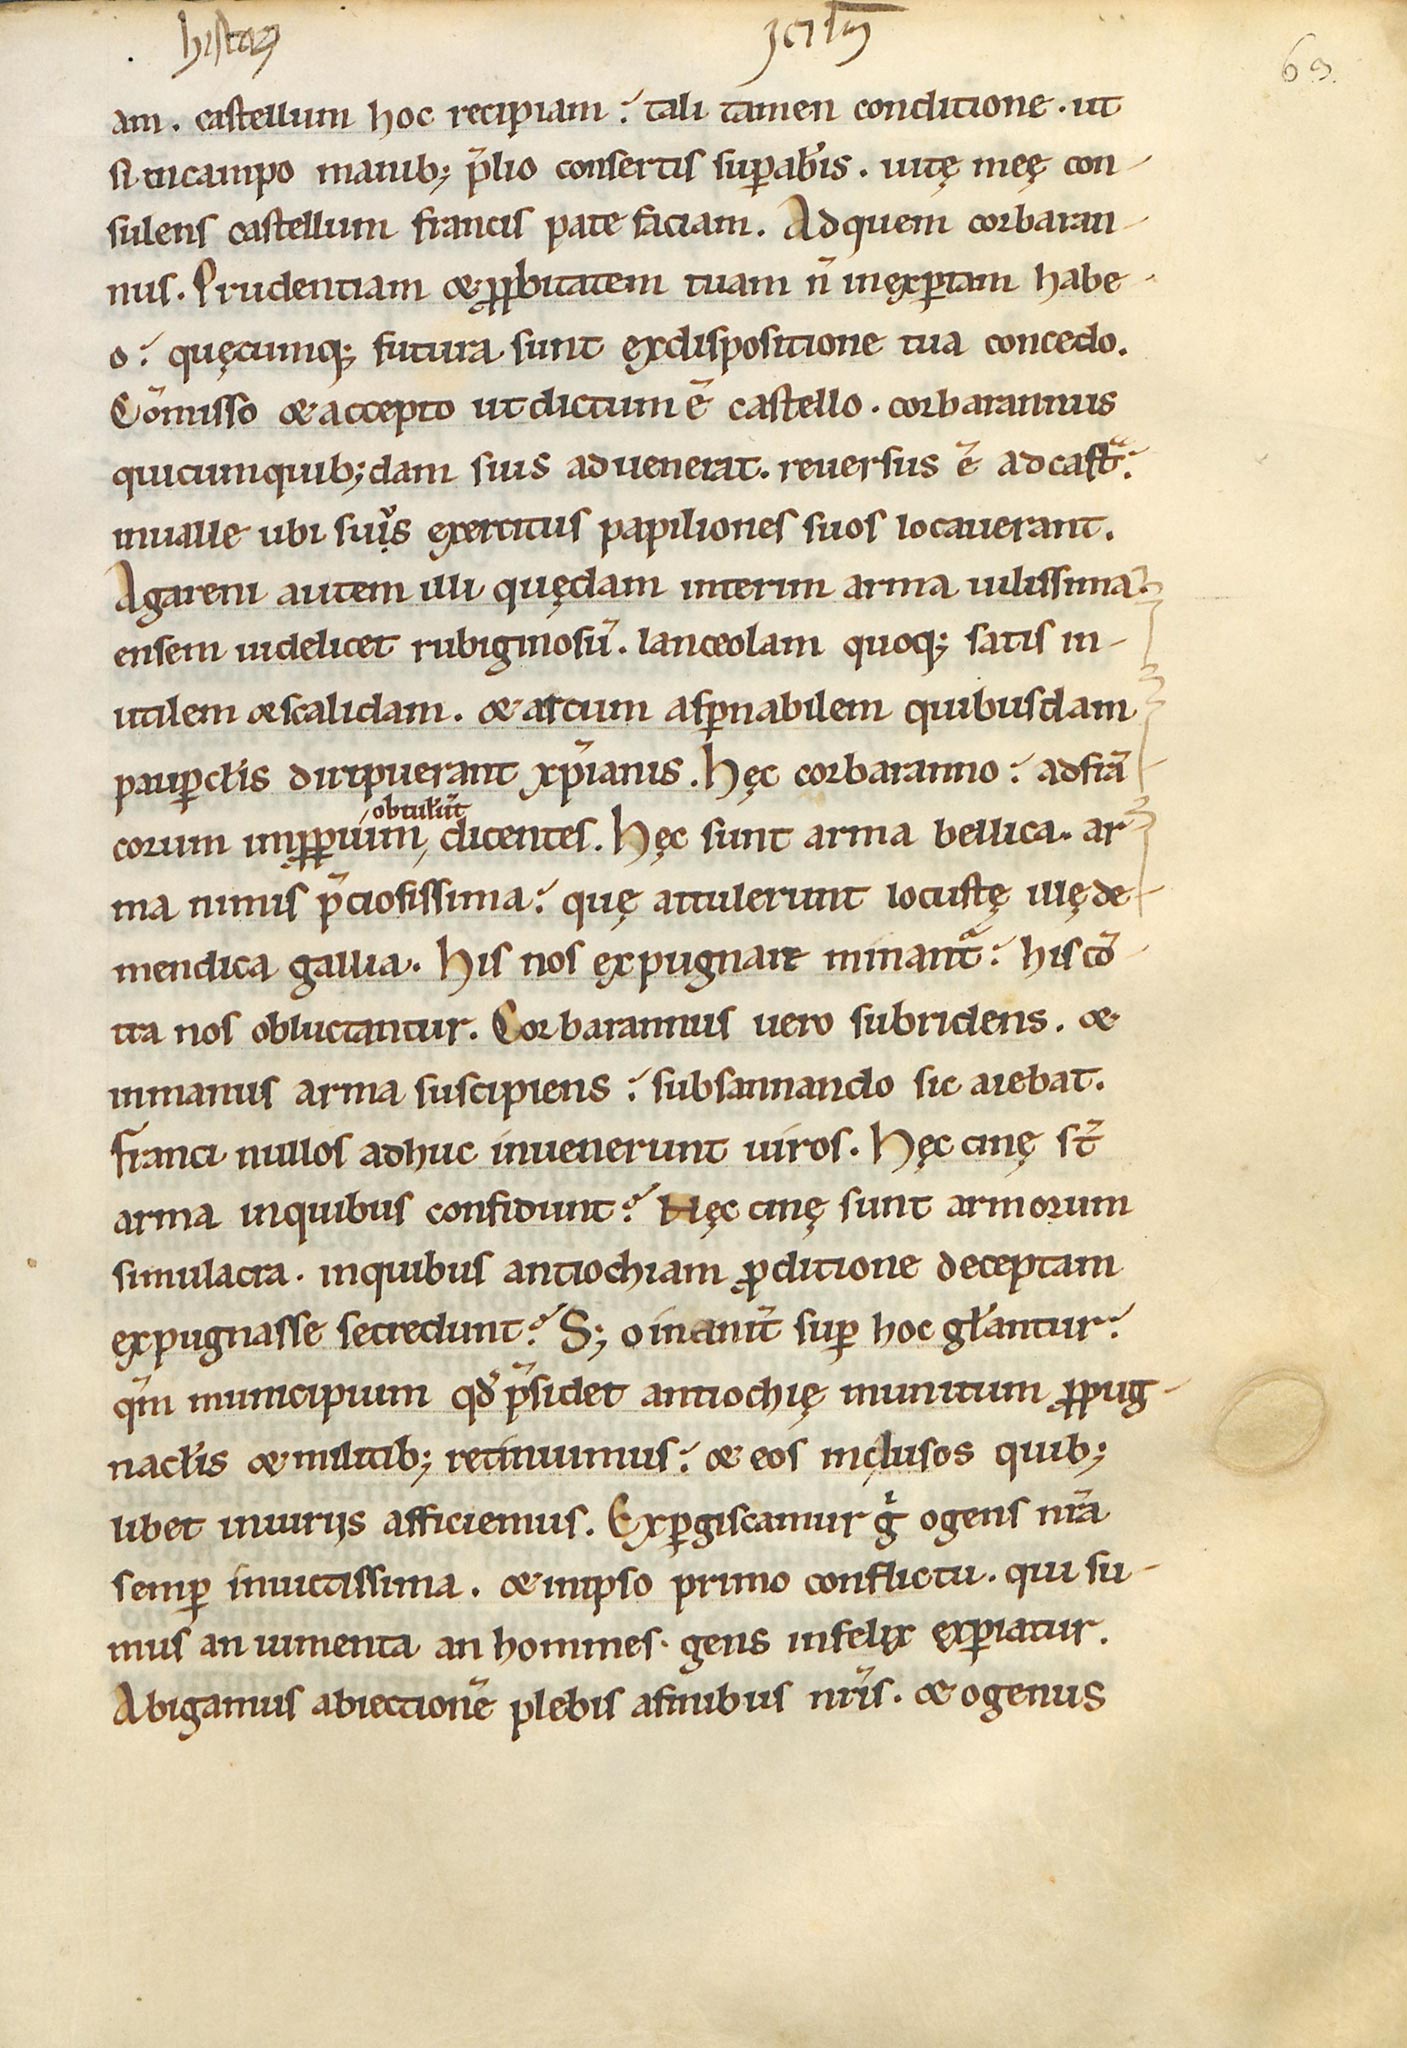 69.
am. castellum hoc recipiam? tali tamen conditione. ut
si incampo manib; p̄lio consertis sup̱abis. uitę meę con-
sulens castellum francis pate faciam. Adquem corbaran-
nus. Prudentiam & ꝓbitatem tuam n̄ inexp̱tam habe-
o? quęcumq; futura sunt exdispositione tua concedo.
Cōmisso & accepto utdictum ē castello. corbarannus
quicumquib;dam suis aduenerat. reuersus ē adcastᵃ.
inualle ubi suus exercitus papiliones suos locauerant.
Agareni autem illi quędam interim arma uilissima.
ensem uidelicet rubiginosū. lanceolam quoq; satis in-
utilem & scalidam. & arcum asp̱nabilem quibusdam
paup̱cłis diripuerant xp̄ianis. Hęc corbaranno? adfrā
corum imꝓp̱ium, obtulert̄ dicentes. Hęc sunt arma bellica. ar-
ma nimis p̄ciosissima? quę attulerunt locustę illęde-
mendica gallia. His nos expugnare minantᵃ? his cō-
tra nos obluctantur. Corbarannus uero subridens. &
inmanus arma suscipiens? subsannando sic aiebat.
Franci nullos adhuc inuenerunt uiros. Hęc cinę st̄
arma inquibus confidunt? Hęc cinę sunt armorum
simulacra. inquibus antiochiam ꝓditione deceptam
expugnasse secredunt? S; o inanit̄ sup̱ hoc głantur?
qm̄ municipium qd̄ p̄sidet antiochię munitum ꝓpug-
nacłis & militib; retinuimus? & eos inclusos quib;
libet iniuriis afficiemus. Exp̱giscamur g̊ ogens nr̄a
semp̱ inuictissima. & inipso primo conflictu. qui su-
mus an iumenta an homines. gens infelix exp̱iatur.
Abigamus abiectionē plebis afinibus nr̄is. & ogenus